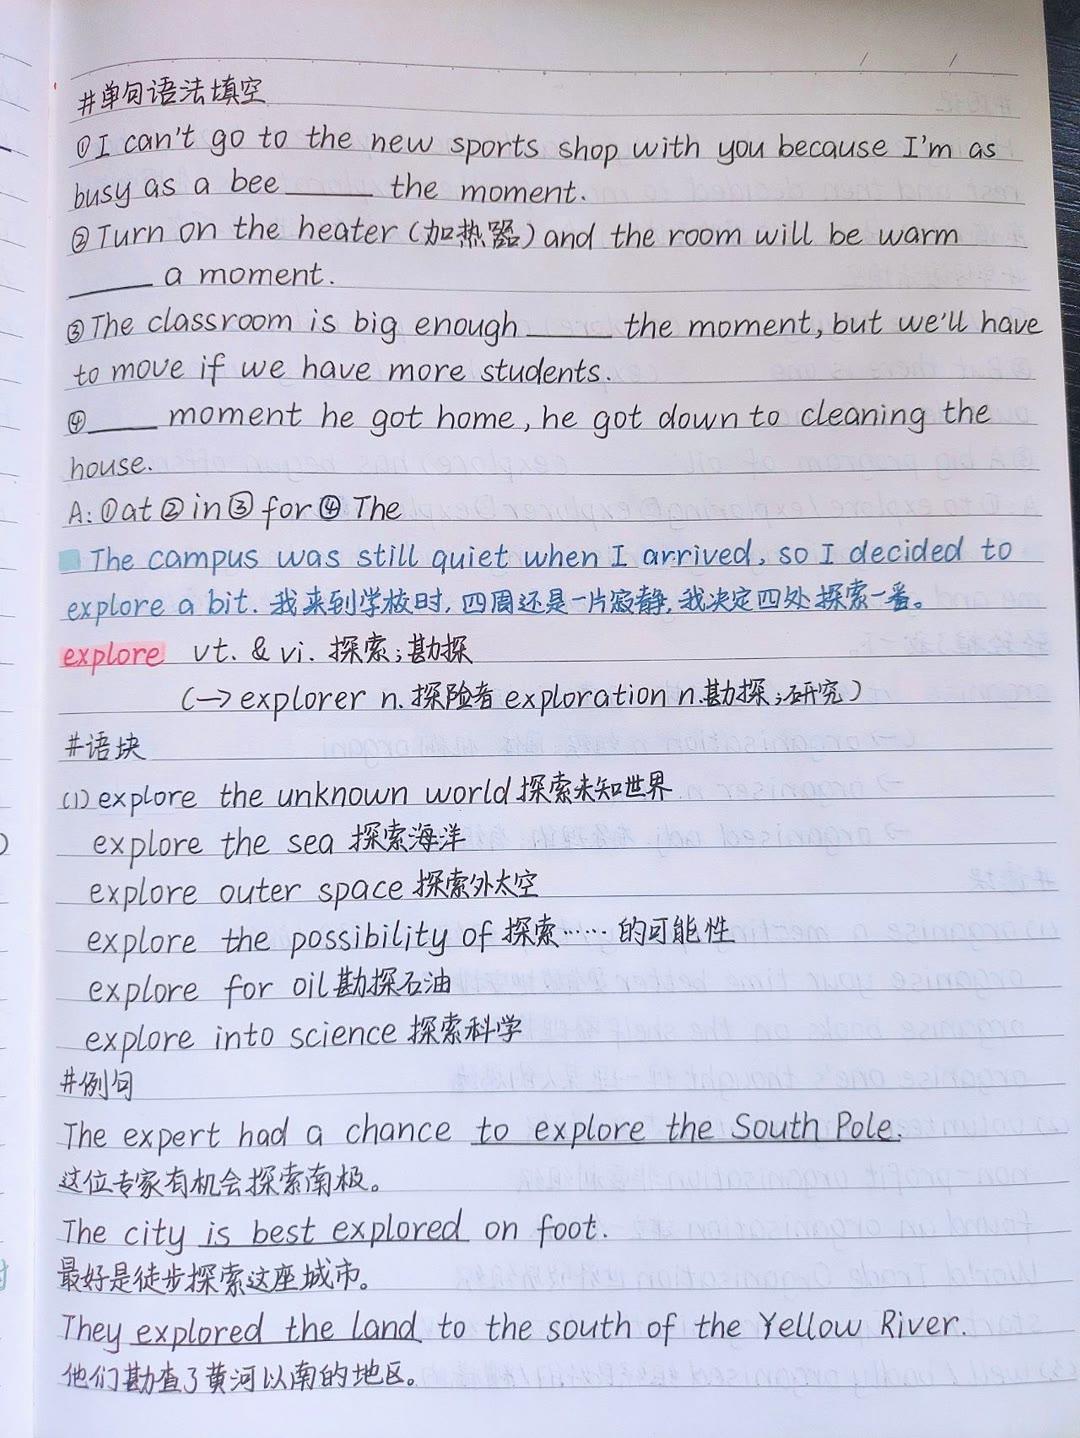 #单句语法填空
①I can't go to the new sports shop with you because I'm as
busy as a bee ____ the moment.
②Turn on the heater(加热器)and the room will be warm
____ a moment.
③The classroom is big enough ____ the moment, but we'll have
to move if we have more students.
④____ moment he got home, he got down to cleaning the
house.
A:①at②in③for④The
The campus was still quiet when I arrived, so I decided to
explore a bit. 我来到学校时,四周还是一片寂静,我决定四处探索一番。
explore vt. & vi. 探索;勘探
(→explorer n.探险者 exploration n.勘探;研究)
#语块
(1)explore the unknown world探索未知世界
explore the sea 探索海洋
explore outer space 探索外太空
explore the possibility of 探索……的可能性
explore for oil勘探石油
explore into science 探索科学
#例句
The expert had a chance to explore the South Pole.
这位专家有机会探索南极。
The city is best explored on foot.
最好是徒步探索这座城市。
They explored the land to the south of the Yellow River.
他们勘查了黄河以南的地区。